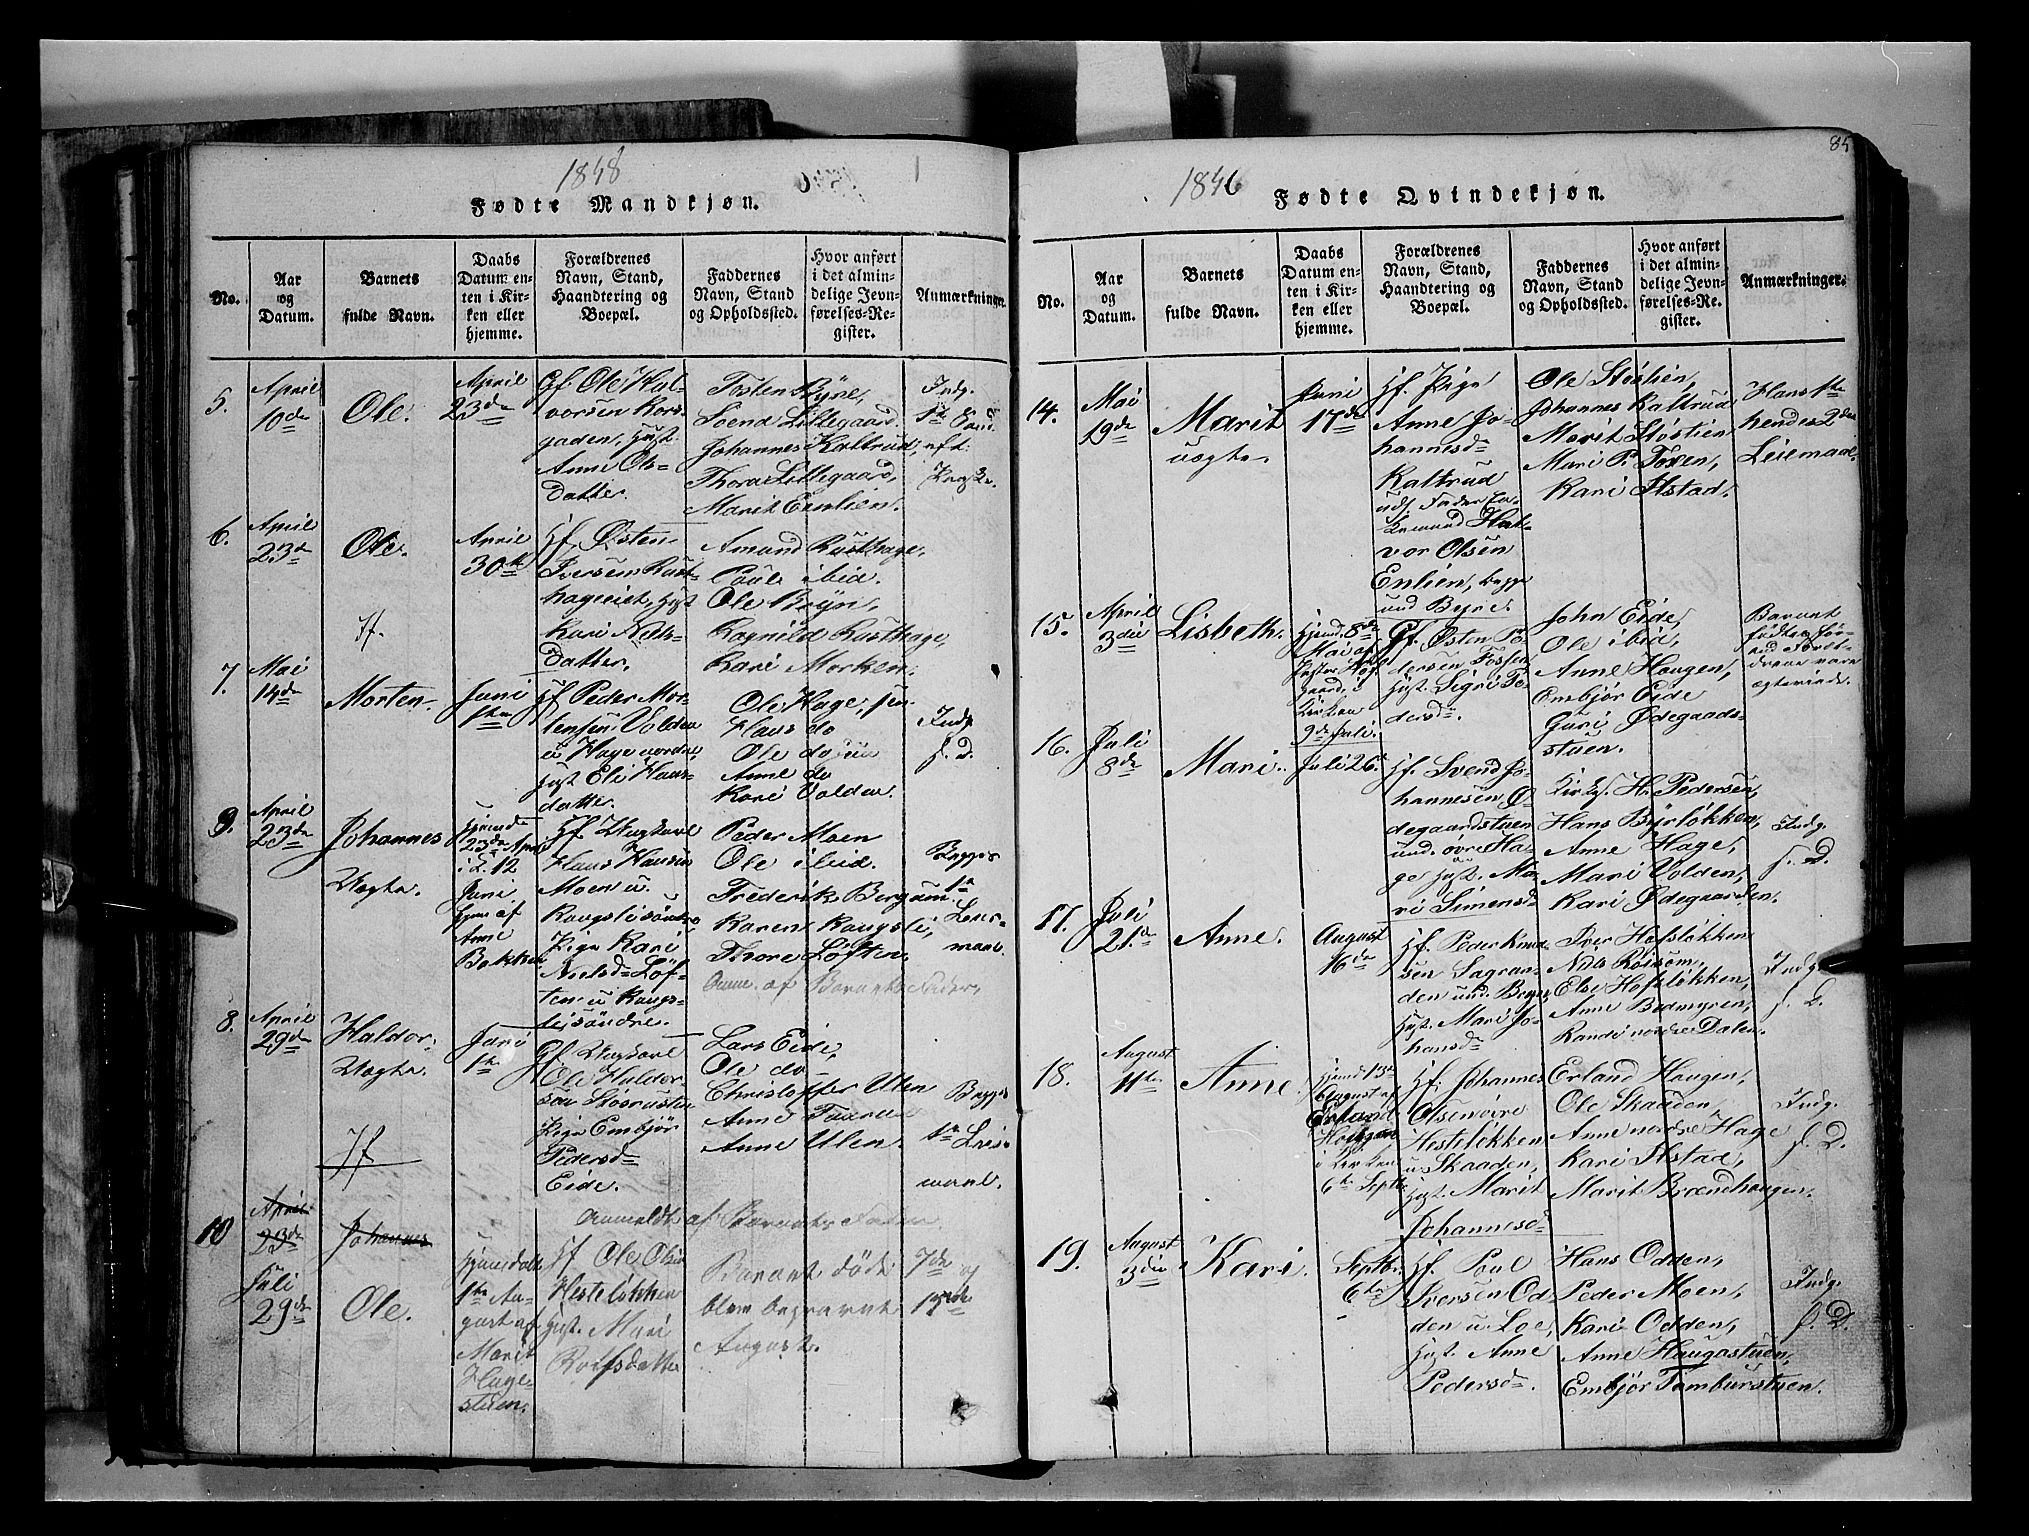 1848
Fødte Mandkjøn.
No.
Aar
og
Datum.
Barnets
fulde Navn.
Daabs
Datum en-
ten i Kir-
ken eller
hjemme.
Forældrenes
Navn, Stand,
Haandtering og
Boepæl.
Faddernes
Navn, Stand
og Opholdssted.
Hvor anført
i det almin-
delige Jevn-
førelses-Re-
gister.
Anmærkninger.
5.
April
10de
Ole.
April
23de
Gf. Ole Hal-
vorsen Kors-
gaden, Hust.
Anne Ols-
Datter.
Tosten Byre,
Svend Lillegaard.
Johannes Kaltrud,
Thora Lillegaard,
Marit Enlien.
Indg.
eft.
6.
April
23de
Ole.
April
30te
Gf. Østen
Iversen Rust-
hageeiet, Hust
Kari Niels-
Datter.
Amund Rusthage,
Poul ibid.
Ole Bryn,
Ragnild Rusthage,
Kari Morken.
7.
Mai
14de
Morten.
Juni
1ste
Gf. Peder Mor-
tensen Volden
u. Hage nordre,
Hust. Eli Hans-
datter.
Ole Hage, sen
Hans do
Ole do jun
Anne do
Kari Volden.
Indg.
f. D.
9.
April
23de
Johannes
Uægte.
Hjemdt
23de April
12
Juni
Hjem af
Anne
Bakken
Gf. Ungkarl
Hans Hansen
Moen u.
Kongslisøndre,
Pige Kari
Nielsd. Løf-
ten u. Kongs-
lisøndre.
Peder Moen
Ole ibid.
Frederik Bergum.
Karen Kongsli,
Thore Løften.
Anm. af Barnets Fader.
Begges
1ste
Leier-
maal.
8.
April
29de
Haldor.
Uægte.
Juni
1ste
Gf. Ungkarl
Ole Haldor-
sen
Pige Embjør
Pedersd.
Eide.
Lars Eide,
Ole do
Christoffer Ulen
Anne
Anne Ulen.
Begges
1ste Leier-
maal.
10
April
23de
Johannes
Juli
29de
Ole.
Hjemedøbt
1ste Au-
gust af
Marit
Hage-
stuen.
Anmeldt af Barnets Fader.
Gf. Ole Olsen
Hesteløkken
Hust. Mari
Rolfsdatter
Barnet døde 7de og
blev begravet 13de
August.
85
1846
Fødte Qvindekjøn.
No.
Aar
og
Datum.
Barnets
fulde Navn.
Daabs
Datum en-
ten i Kir-
ken eller
hjemme.
Forældrenes
Navn, Stand,
Haandtering og
Boepæl.
Faddernes
Navn, Stand
og Opholdssted.
Hvor anført
i det almin-
delige Jevn-
førelses-Re-
gister.
Anmærkninger.
14.
Mai
19de
Marit
uægte.
Juni
17de
Gf. Pige
Anne Jo-
hannesd.
Kaltrud
Hal-
vor Olsen
Enlien, begge
und Byre.
Ole Støstien,
Johannes Kaltrud
Marit Støstien
Mari P. Toven,
Kari Ilstad.
Hans 1ste
hendes 2den
Leiemaal.
15.
April
3die
Lisbeth.
Hjemd. 8de
Mai af
gaard, i
Kirken
9de Juli.
Gf. Østen To-
dersen Fossen
Hust. Sigri To-
dersd.
John Eide,
Ole ibid,
Anne Haugen,
Embjør Eide
Guri Ødegaards-
stuen.
Barnet
født før-
end Foræl-
drene vare
ægteviede.
16.
Juli
8de
Mari.
Juli 26.
Gf. Svend Jo-
hannesen Ø-
degaardstuen
und. øvre Ha-
ge Hust. Ma-
ri Simensd.
Kirkes. H. Pedersen,
Hans Byrløkken,
Anne Hage,
Mari Volden,
Kari Ødegaarden.
Indg.
f. D.
17.
Juli
21.
Anne.
August
16de
Gf. Peder Knud-
sen Sagran-
den und. Bryn,
Hust. Mari Jo-
hansd.
Iver Hofsløkken
Niels Røssum,
Else Hofsløkken,
Anne Badmyren,
Randi nordre Dalen.
Indg.
f. D.
18.
August
11te
Anne
Hjemd 13de
August af
Erland
Haugen
i Kirken
6te Septbr
Gf. Johannes
Olsen øvre
Hesteløkken
u. Skaaden,
Hust. Marit
Johannesd.
Erland Haugen,
Ole Skaaden,
Anne nordre Hage
Kari Ilstad,
Marit Brændhaugen.
Indg.
f. D.
19.
August
3die
Kari.
Septbr.
6te
Gf. Poul
Iversen Od-
den u. Loe,
Hust. Anne
Pedersd.
Hans Odden,
Peder Moen,
Kari Odden,
Anne Haugastuen,
Embjør Tomburstuen.
Indg.
f. D.